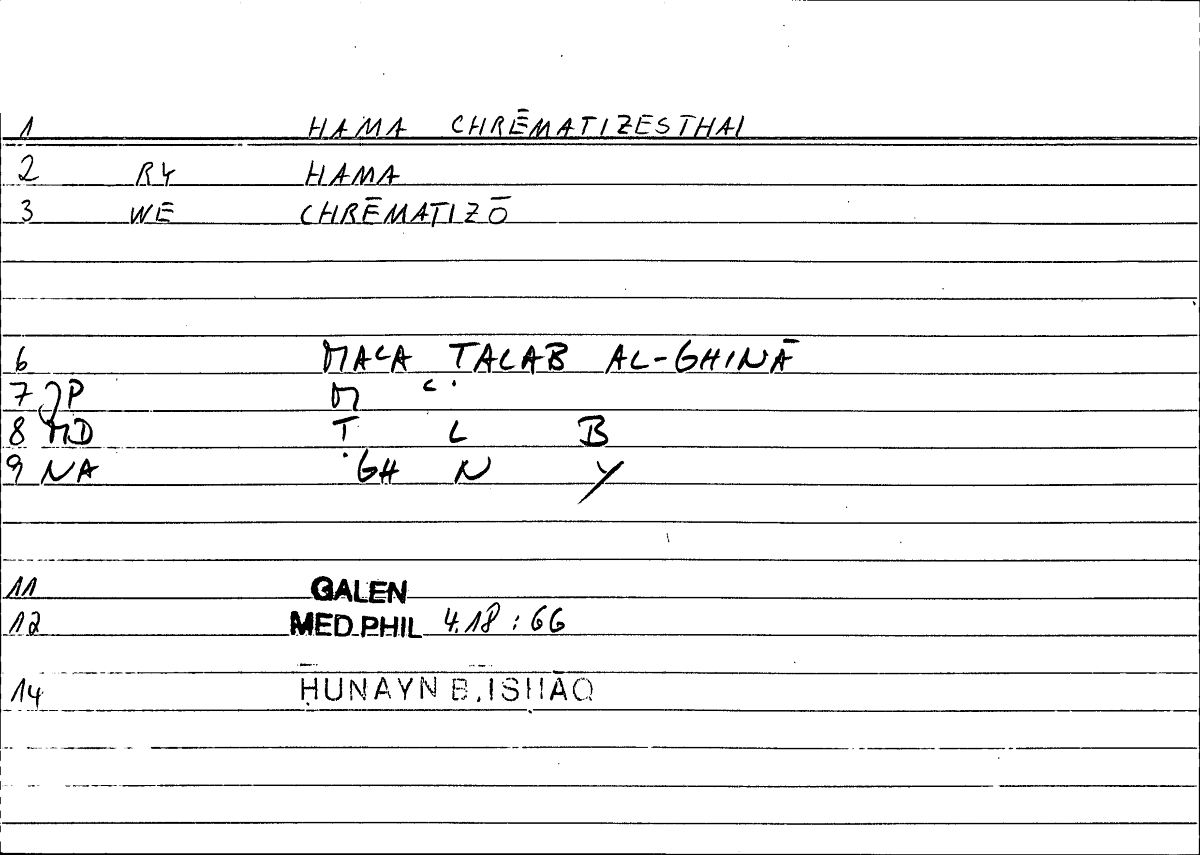 1 HAMA CHRĒMATIZESTHAI
2 RY HAMA
3 WE CHRĒMATIZŌ
6 MAʿA TALAB AL-GHINĀ
7 JP M ʿ
8 MD T L B
9 NA GH N Y
11 GALEN
12 MED.PHIL 4.18 : 66
14 ḤUNAYN B. ISḤĀQ